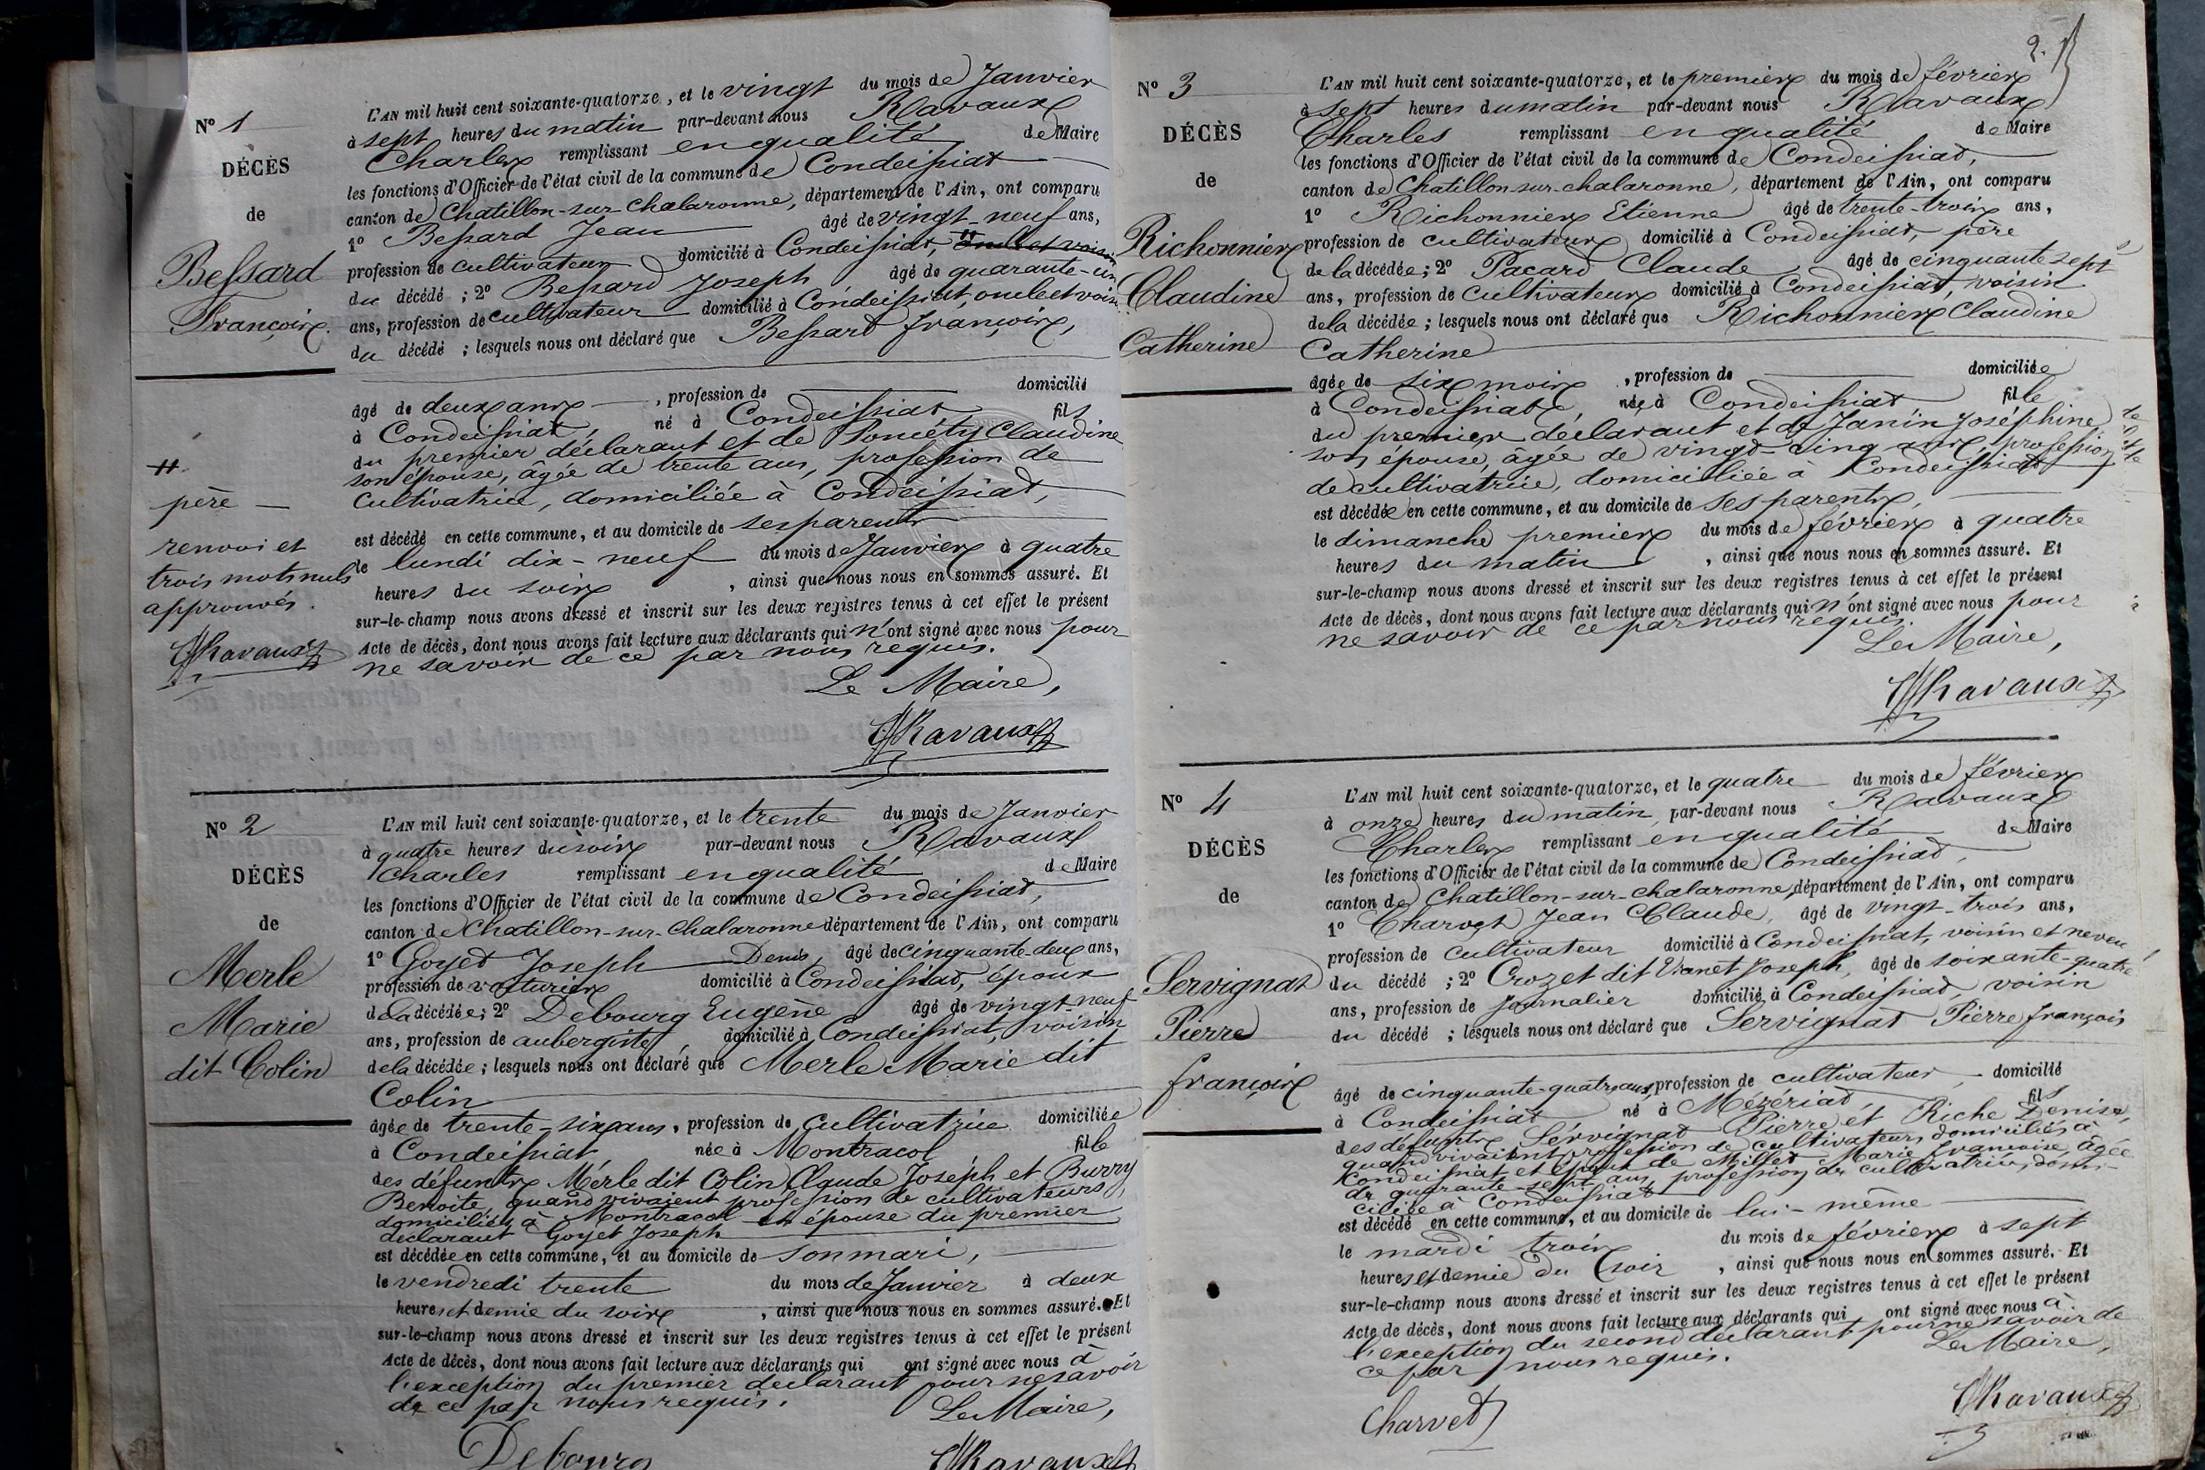 Nº 1
DÉCÈS
de
Bessard
François.
#
père —
renvoi et
trois mots nuls
approuvés.
Ravaux
L'AN mil huit cent soixante-quatorze, et le vingt du mois de Janvier
à sept heures du matin par-devant nous Ravaux
Charles remplissant en qualité de Maire
les fonctions d'Officier de l'état civil de la commune de Condeissiat
canton de Chatillon-sur-Chalaronne, département de l'Ain, ont comparu
1º Bessard Jean âgé de vingt-neuf ans,
profession de cultivateur domicilié à Condeissiat, # oncle et voisin
du décédé ; 2º Bessard Joseph âgé de quarante-un
ans, profession de cultivateur domicilié à Condeissiat, oncle et voisin
du décédé ; lesquels nous ont déclaré que Bessard François,
âgé de deux ans , profession de domicilié
à Condeissiat, né à Condeissiat fils
du premier déclarant et de Poncéty Claudine
son épouse, âgée de trente ans, profession de
cultivatrice, domiciliée à Condeissiat,
est décédé en cette commune, et au domicile de ses parents
le lundi dix-neuf du mois de Janvier à quatre
heures du soir , ainsi que nous nous en sommes assuré. Et
sur-le-champ nous avons dressé et inscrit sur les deux registres tenus à cet effet le présent
Acte de décès, dont nous avons fait lecture aux déclarants qui n'ont signé avec nous pour
ne savoir de ce par nous requis.
Le Maire,
Ravaux
Nº 2
DÉCÈS
de
Merle
Marie
dit Colin
L'AN mil huit cent soixante-quatorze, et le trente du mois de Janvier
à quatre heures du soir par-devant nous Ravaux
Charles remplissant en qualité de Maire
les fonctions d'Officier de l'état civil de la commune de Condeissiat,
canton de Chatillon-sur-Chalaronne département de l'Ain, ont comparu
1º Goyet Joseph Denis, âgé de cinquante-deux ans,
profession de voiturier domicilié à Condeissiat, époux
de la décédée ; 2º Debourg Eugène âgé de vingt-neuf
ans, profession de aubergiste, domicilié à Condeissiat, voisin
de la décédée ; lesquels nous ont déclaré que Merle Marie dit
Colin
âgée de trente-six ans, profession de cultivatrice domiciliée
à Condeissiat, née à Montracol fille
des défunts Merle dit Colin Claude Joseph et Burry
Benoite, quand vivaient profession de cultivateurs,
domiciliés à Montracol et épouse du premier
déclarant Goyet Joseph
est décédée en cette commune, et au domicile de son mari,
le vendredi trente du mois de Janvier à deux
heures et demie du soir , ainsi que nous nous en sommes assuré. Et
sur-le-champ nous avons dressé et inscrit sur les deux registres tenus à cet effet le présent
Acte de décès, dont nous avons fait lecture aux déclarants qui ont signé avec nous à
l'exception du premier déclarant pour ne savoir
de ce par nous requis.
Le Maire,
Debourg Ravaux
2.
Nº 3
DÉCÈS
de
Richonnier
Claudine
Catherine
L'AN mil huit cent soixante-quatorze, et le premier du mois de février
à sept heures du matin par-devant nous Ravaux
Charles remplissant en qualité de Maire
les fonctions d'Officier de l'état civil de la commune de Condeissiat,
canton de Chatillon-sur-chalaronne, département de l'Ain, ont comparu
1º Richonnier Etienne âgé de trente-trois ans,
profession de cultivateur domicilié à Condeissiat, père
de la décédée ; 2º Pacard Claude, âgé de cinquante sept
ans, profession de cultivateur domicilié à Condeissiat, voisin
de la décédée ; lesquels nous ont déclaré que Richonnier Claudine
Catherine
âgée de six mois , profession de domiciliée
à Condeissiat, née à Condeissiat fille
du premier déclarant et de Janin Joséphine
son épouse, âgée de vingt-cinq ans, profession
de cultivatrice, domiciliée à Condeissiat
est décédée en cette commune, et au domicile de ses parents,
le dimanche premier du mois de février à quatre
heures du matin , ainsi que nous nous en sommes assuré. Et
sur-le-champ nous avons dressé et inscrit sur les deux registres tenus à cet effet le présent
Acte de décès, dont nous avons fait lecture aux déclarants qui n'ont signé avec nous pour
ne savoir de ce par nous requis.
Le Maire,
Ravaux
Nº 4
DÉCÈS
de
Servignat
Pierre
françois
L'AN mil huit cent soixante-quatorze, et le quatre du mois de février
à onze heures du matin, par-devant nous Ravaux
Charles remplissant en qualité de Maire
les fonctions d'Officier de l'état civil de la commune de Condeissiat,
canton de Chatillon-sur-Chalaronne, département de l'Ain, ont comparu
1º Charvet Jean Claude, âgé de vingt-trois ans,
profession de cultivateur domicilié à Condeissiat, voisin et neveu
du décédé ; 2º Crozet dit Joseph, âgé de soixante-quatre
ans, profession de journalier domicilié à Condeissiat, voisin
du décédé ; lesquels nous ont déclaré que Servignat Pierre françois
âgé de cinquante-quatre ans, profession de cultivateur, domicilié
à Condeissiat né à Mézériat, fils
des défunts Servignat Pierre et Riche Denise,
quand vivaient profession de cultivateurs, domiciliés à
Condeissiat et époux de Millet Marie Françoise, âgée
de quarante-sept ans, profession de cultivatrice, domi-
ciliée à Condeissiat
est décédé en cette commune, et au domicile de lui-même
le mardi trois du mois de février à sept
heures et demie du soir , ainsi que nous nous en sommes assuré. Et
sur-le-champ nous avons dressé et inscrit sur les deux registres tenus à cet effet le présent
Acte de décès, dont nous avons fait lecture aux déclarants qui ont signé avec nous à
l'exception du second déclarant pour ne savoir de
ce par nous requis.
Le Maire,
Charvet Ravaux